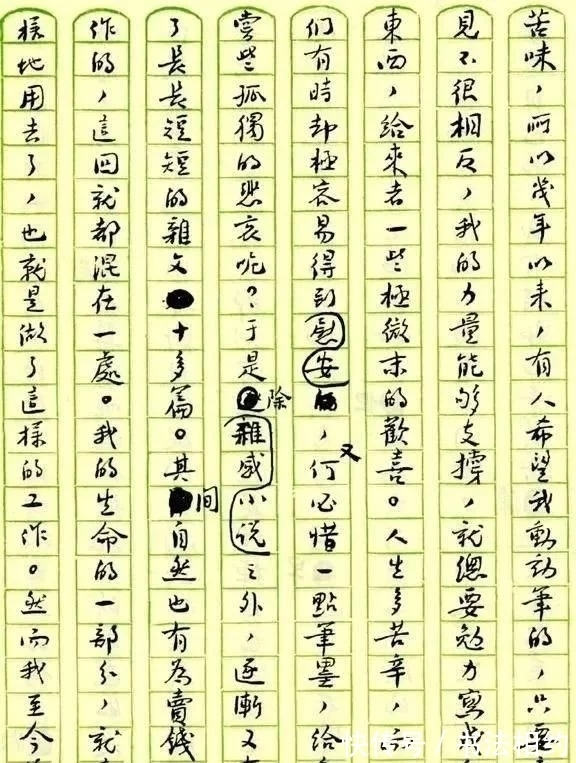 苦味，所以幾年以来，有人希望我動動筆的，只要
見不很相反，我的力量能够支撐，就總要勉力寫
東西，給來者一些極微末的歡喜。人生多苦辛，
们有時却極容易得到慰安，又何必惜一點筆墨，給
嘗些孤獨的悲哀呢？于是除雜感小说之外，逐漸又
了長長短短的雜文十多篇。其间自然也有為賣錢
作的，這回就都混在一處。我的生命的一部分，就
樣地用去了，也就是做了這樣的工作。然而我至今
快传号 /